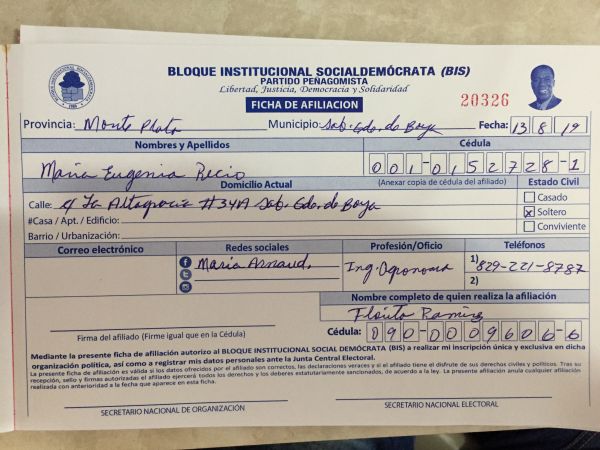 BLOQUE INSTITUCIONAL SOCIALDEMÓCRATA (BIS)
PARTIDO PEÑAGOMISTA
Libertad, Justicia, Democracia y Solidaridad
FICHA DE AFILIACION
20326
Provincia: Monte Plata Municipio: Sab. Gde. de Boya Fecha: 13/8/19
Nombres y Apellidos Cédula
Maria Eugenia Recio 001-0152728-1
Domicilio Actual (Anexar copia de cédula del afiliado) Estado Civil
Calle: C/ La Altagracia #34A Sab. Gde. de Boya
Casado
#Casa / Apt. / Edificio:
x Soltero
Barrio / Urbanización:
Conviviente
Correo electrónico Redes sociales Profesión/Oficio Teléfonos
Maria Arnaud. Ing. Agronoma 1) 829-221-8787
2)
Nombre completo de quien realiza la afiliación
Ramirez
Firma del afiliado (Firme igual que en la Cédula)
Cédula: 090-0009606-6
Mediante la presente ficha de afiliación autorizo al BLOQUE INSTITUCIONAL SOCIAL DEMÓCRATA (BIS) a realizar mi inscripción única y exclusiva en dicha
organización política, así como a registrar mis datos personales ante la Junta Central Electoral.
La presente ficha de afiliación es válida si los datos ofrecidos por el afiliado son correctos, las declaraciones veraces y si el afiliado tiene el disfrute de sus derechos civiles y políticos. Tras su
recepción, sello y firmas autorizadas el afiliado ejercerá todos los derechos y los deberes estatutariamente sancionados, de acuerdo a la ley. La presente afiliación anula cualquier afiliación
realizada con anterioridad a la fecha que aparece en esta ficha.
SECRETARIO NACIONAL DE ORGANIZACIÓN SECRETARIO NACIONAL ELECTORAL